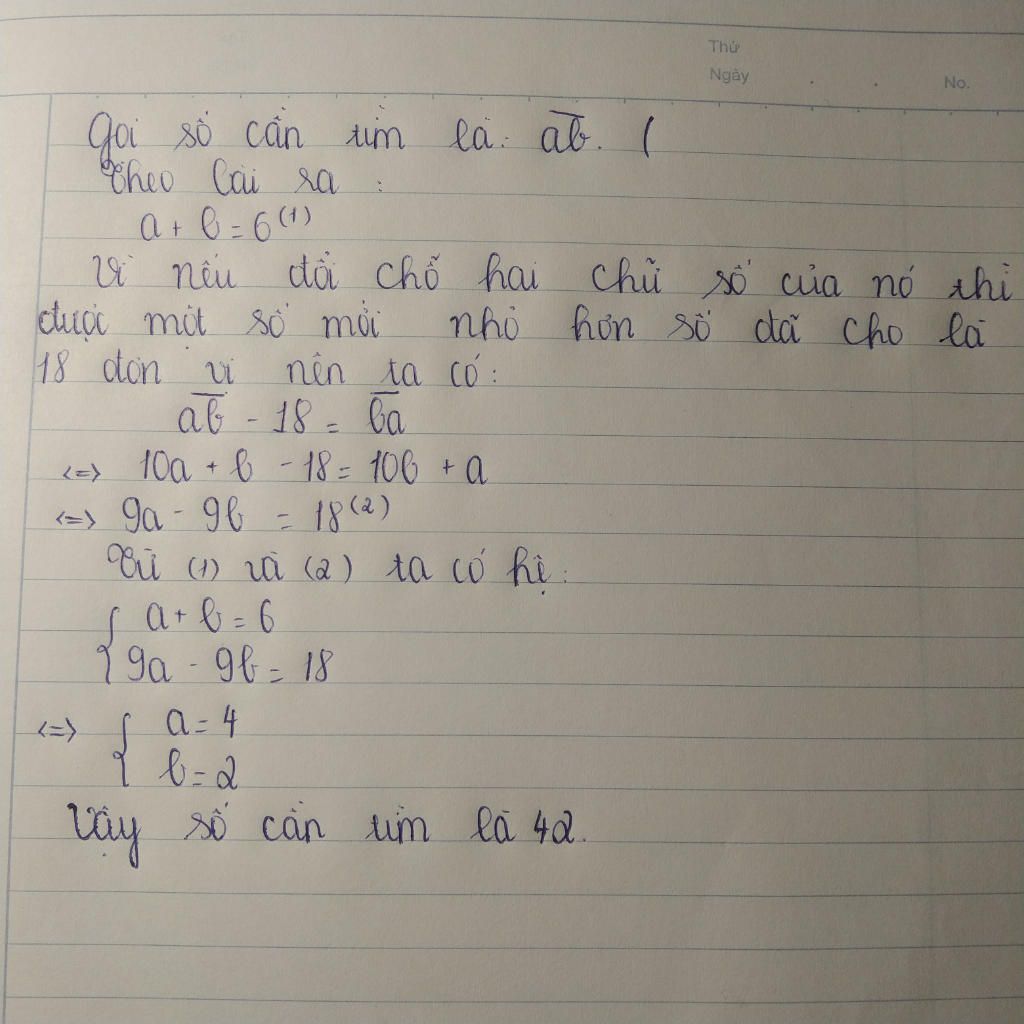 Thứ
Ngày . . No.
Gọi số cần tìm là: ab̅. (
Theo bài ra :
a + b = 6 (1)
Vì nếu đổi chỗ hai chữ số của nó thì
được một số mới nhỏ hơn số đã cho là
18 đơn vị nên ta có:
a̅b̅ - 18 = b̅a̅
<=> 10a + b - 18 = 10b + a
<=> 9a - 9b = 18 (2)
Từ (1) và (2) ta có hệ:
{ a + b = 6
9a - 9b = 18
<=> { a = 4
b = 2
Vậy số cần tìm là 42.